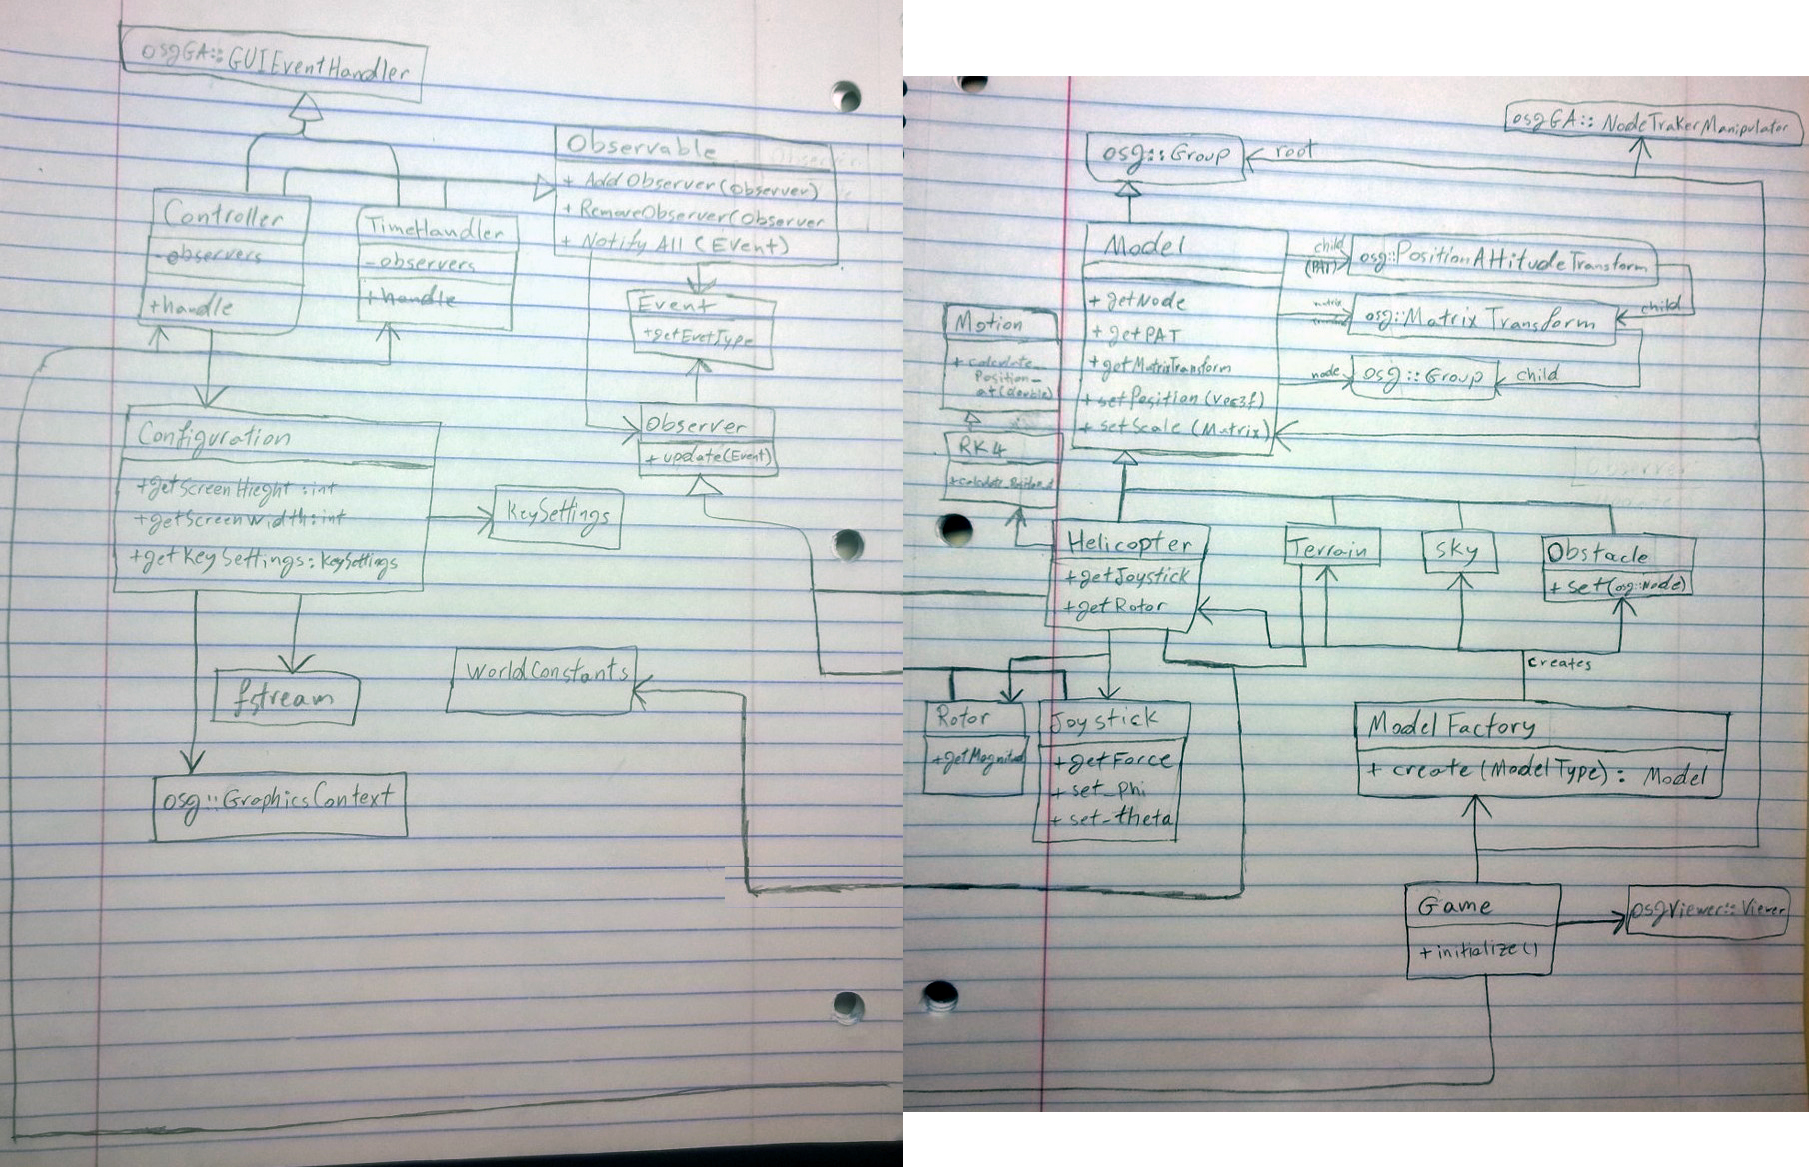 osgGA::GUIEventHandler
Observable
+ AddObserver(Observer)
+ RemoveObserver(Observer
+ Notify All (Event)
Controller
-observers
+handle
TimeHandler
-observers
+handle
Event
+getEvetType
Observer
+update(Event)
Configuration
+getScreenHieght :int
+getScreenWidth:int
+getKeySettings: KeySettings
KeySettings
fstream
WorldConstants
osg::GraphicsContext
osgGA:: NodeTrakerManipulator
osg::Group
root
Model
+ getNode
+ getPAT
+ getMatrixTransform
+ setPosition (Vec3f)
+ setScale (Matrix)
child
(PAT)
osg::PositionAttitudeTransform
matrix
osg::MatrixTransform
child
node
osg::Group
child
Motion
+ calculate_
Position_
at(double)
RK4
Helicopter
+getJoystick
+getRotor
Terrain
Sky
Obstacle
+ set(osg::Node)
creates
Rotor
+getMagnitud
Joystick
+getForce
+ set_phi
+ set_theta
Model Factory
+ create (ModelType): Model
Game
+initialize()
osgViewer::Viewer